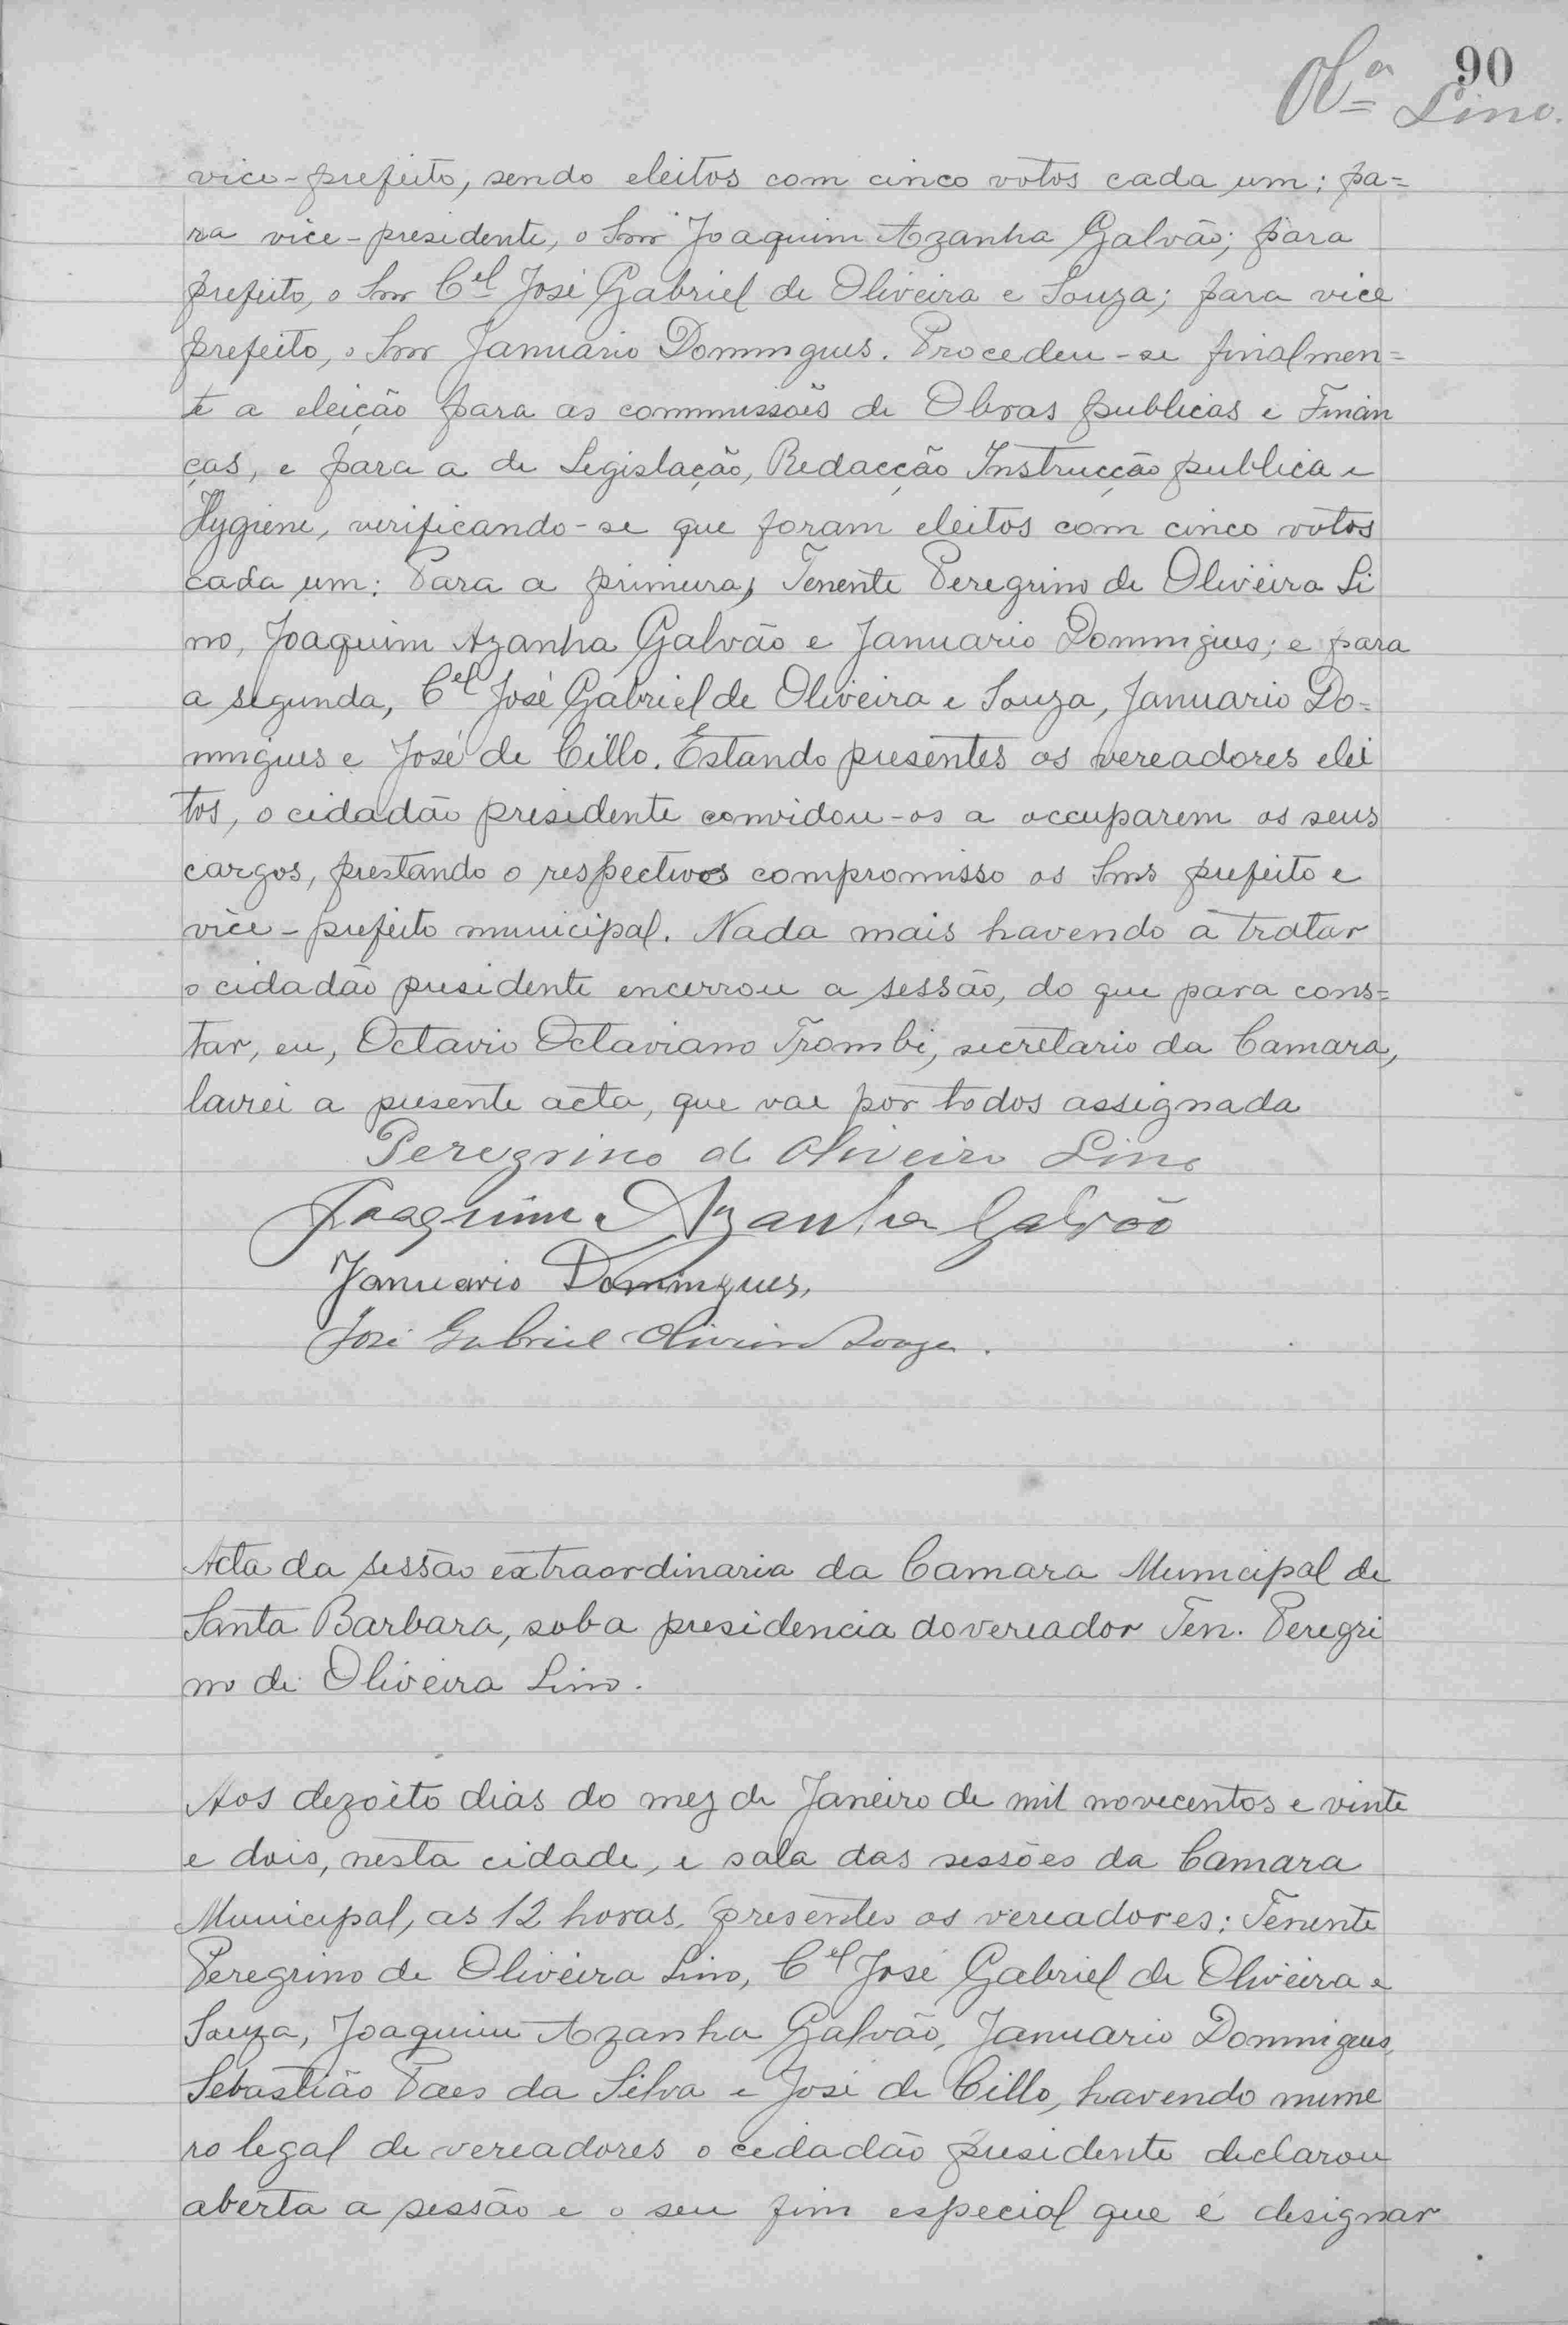 90
Olª Lino.
vice-prefeito, sendo eleitos com cinco votos cada um: pa=
ra vice-presidente, o Snr Joaquim Azanha Galvão; para
prefeito, o Snr Cel José Gabriel de Oliveira e Souza; para vice
prefeito, o Snr Januario Domingues. Procedeu-se finalmen=
te a eleição para as commissões de Obras publicas e Finan
ças, e para a de Legislação, Redacção Instrucção publica e
Hygiene, verificando-se que foram eleitos com cinco votos
cada um: Para a primeira, Tenente Peregrino de Oliveira Li
no, Joaquim Azanha Galvão e Januario Domingues; e para
a segunda, Cel José Gabriel de Oliveira e Souza, Januario Do=
mingues e José de Cillo. Estando presentes os vereadores elei
tos, o cidadão presidente convidou-os a occuparem os seus
cargos, prestando o respectivos compromisso os Snrs prefeito e
vice-prefeito municipal. Nada mais havendo a tratar
o cidadão presidente encerrou a sessão, do que para cons=
tar, eu, Octavio Octaviano Trombi, secretario da Camara,
lavrei a presente acta, que vae por todos assignada
Peregrino de Oliveira Lino
Joaquim Azanha Galvão
Januario Domingues,
José Gabriel Oliveira Souza.
Acta da sessão extraordinaria da Camara Municipal de
Santa Barbara, sob a presidencia do vereador Ten. Peregri
no de Oliveira Lino.
Aos dezoito dias do mez de Janeiro de mil novecentos e vinte
e dois, nesta cidade, e sala das sessões da Camara
Municipal, as 12 horas, presentes os vereadores: Tenente
Peregrino de Oliveira Lino, Cel José Gabriel de Oliveira e
Souza, Joaquim Azanha Galvão, Januario Domingues,
Sebastião Paes da Silva e José de Cillo, havendo nume
ro legal de vereadores o cidadão presidente declarou
aberta a sessão e o seu fim especial que é designar